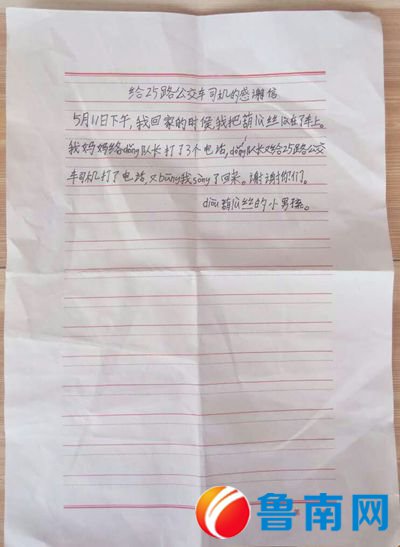 给25路公交车司机的感谢信
5月11日下午,我回家的时候,我把葫芦丝落在了车上。
我妈妈给dǒng队长打了3个电话,dǒng队长又给25路公交
车司机打了电话,又bāng我sòng了回来。谢谢你们。
diū葫芦丝的小男孩。
鲁南网